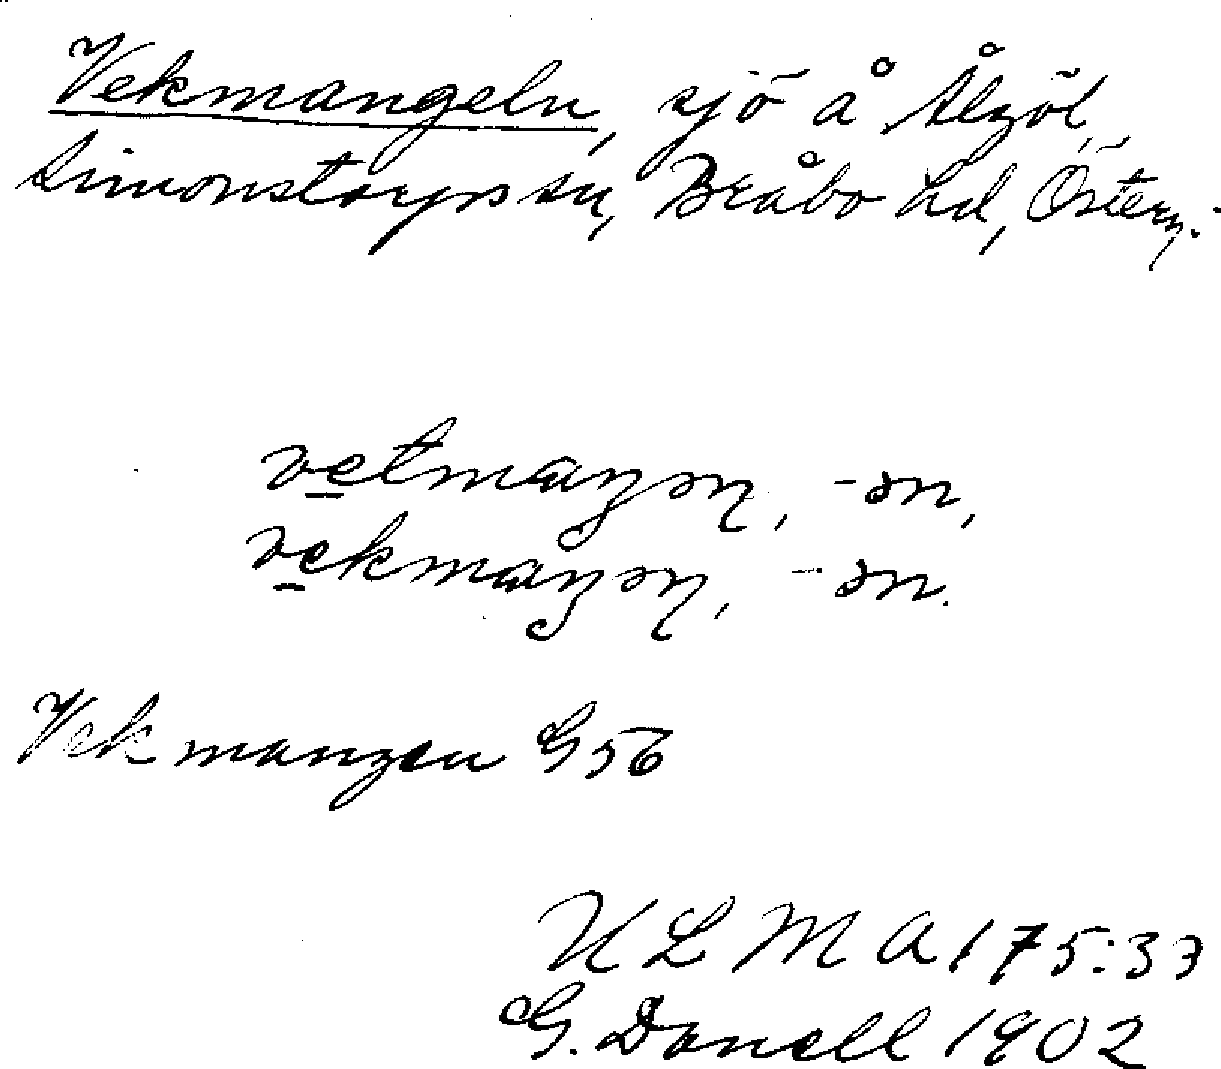 Vekmangeln, sjö å Ålgöl,
Simonstorps sn, Bråbo hd, Österg.
vetmaŋən, -ən,
vekmaŋən, -ən.
Vekmangen G56
ULMA 175:33
G. Danell 1902